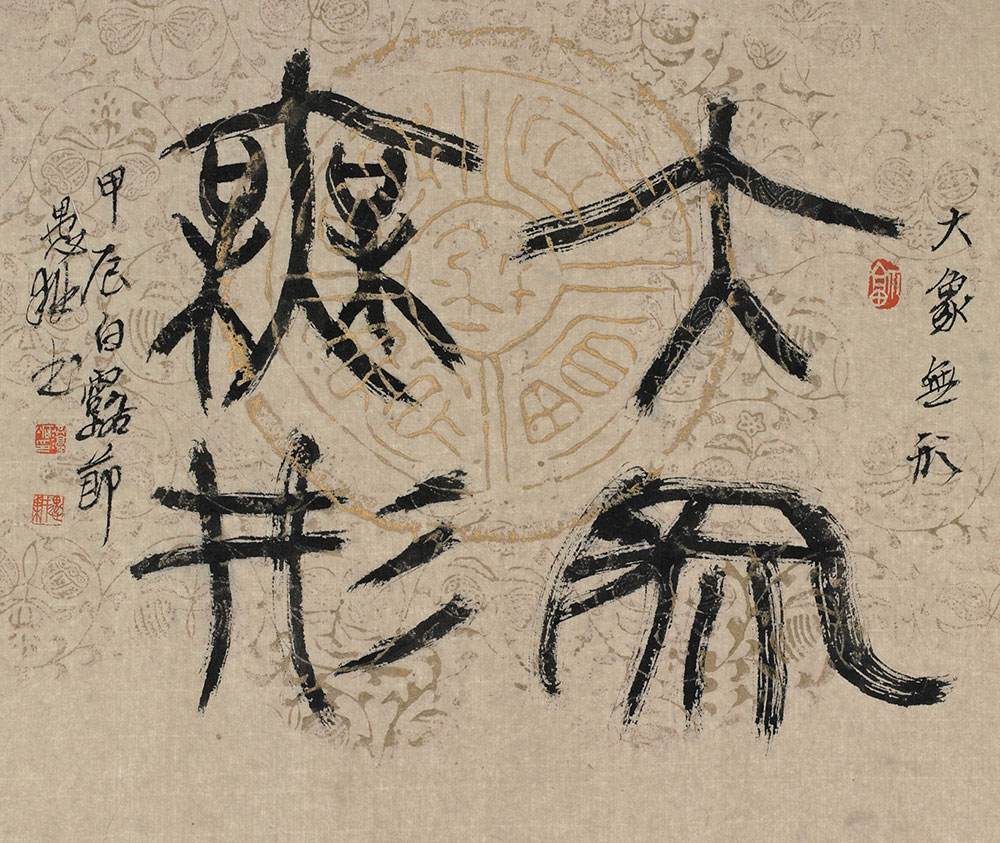 大象
無形
大象無形
甲辰白露節
愚雅书